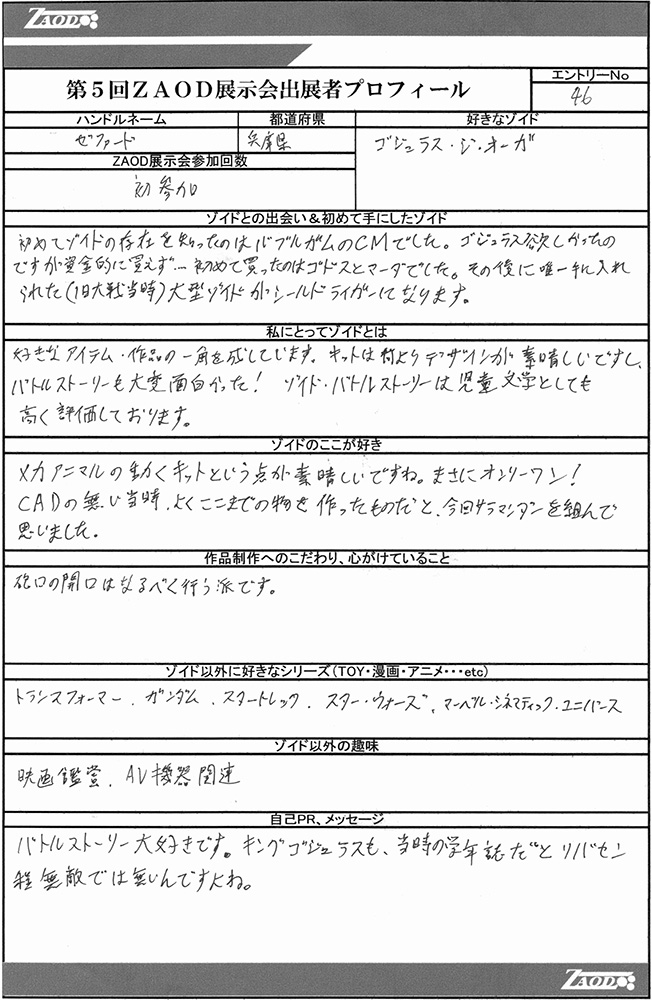 ZAOD
第5回ZAOD展示会出展者プロフィール
エントリーNo
46
ハンドルネーム
都道府県
好きなゾイド
ゼファード
兵庫県
ゴジュラス・ジ・オーガ
ZAOD展示会参加回数
初参加
ゾイドとの出会い&初めて手にしたゾイド
初めてゾイドの存在を知ったのはバブルガムのCMでした。ゴジュラス欲しかったの
ですが資金的に買えず…初めて買ったのはゴドスとマーダでした。その後に唯一手に入れ
られた(旧大戦当時)大型ゾイドがシールドライガーになります。
私にとってゾイドとは
好きなアイテム・作品の一角を成しています。キットは何よりデザインが素晴しいですし、
バトルストーリーも大変面白かった! ゾイド・バトルストーリーは児童文学としても
高く評価しております。
ゾイドのここが好き
メカアニマルの動くキットという点が素晴しいですね。まさにオンリーワン!
CADの無い当時、よくここまでの物を作ったものだと、今回サラマンダーを組んで
思いました。
作品制作へのこだわり、心がけていること
砲口の開口はなるべく行う派です。
ゾイド以外に好きなシリーズ(TOY・漫画・アニメ・・・etc)
トランスフォーマー、ガンダム、スタートレック、スター・ウォーズ、マーベル・シネマティック・ユニバース
ゾイド以外の趣味
映画鑑賞、AV機器関連
自己PR、メッセージ
バトルストーリー大好きです。キングゴジュラスも、当時の学年誌だとリバセン
程無敵では無いんですよね。
ZAOD